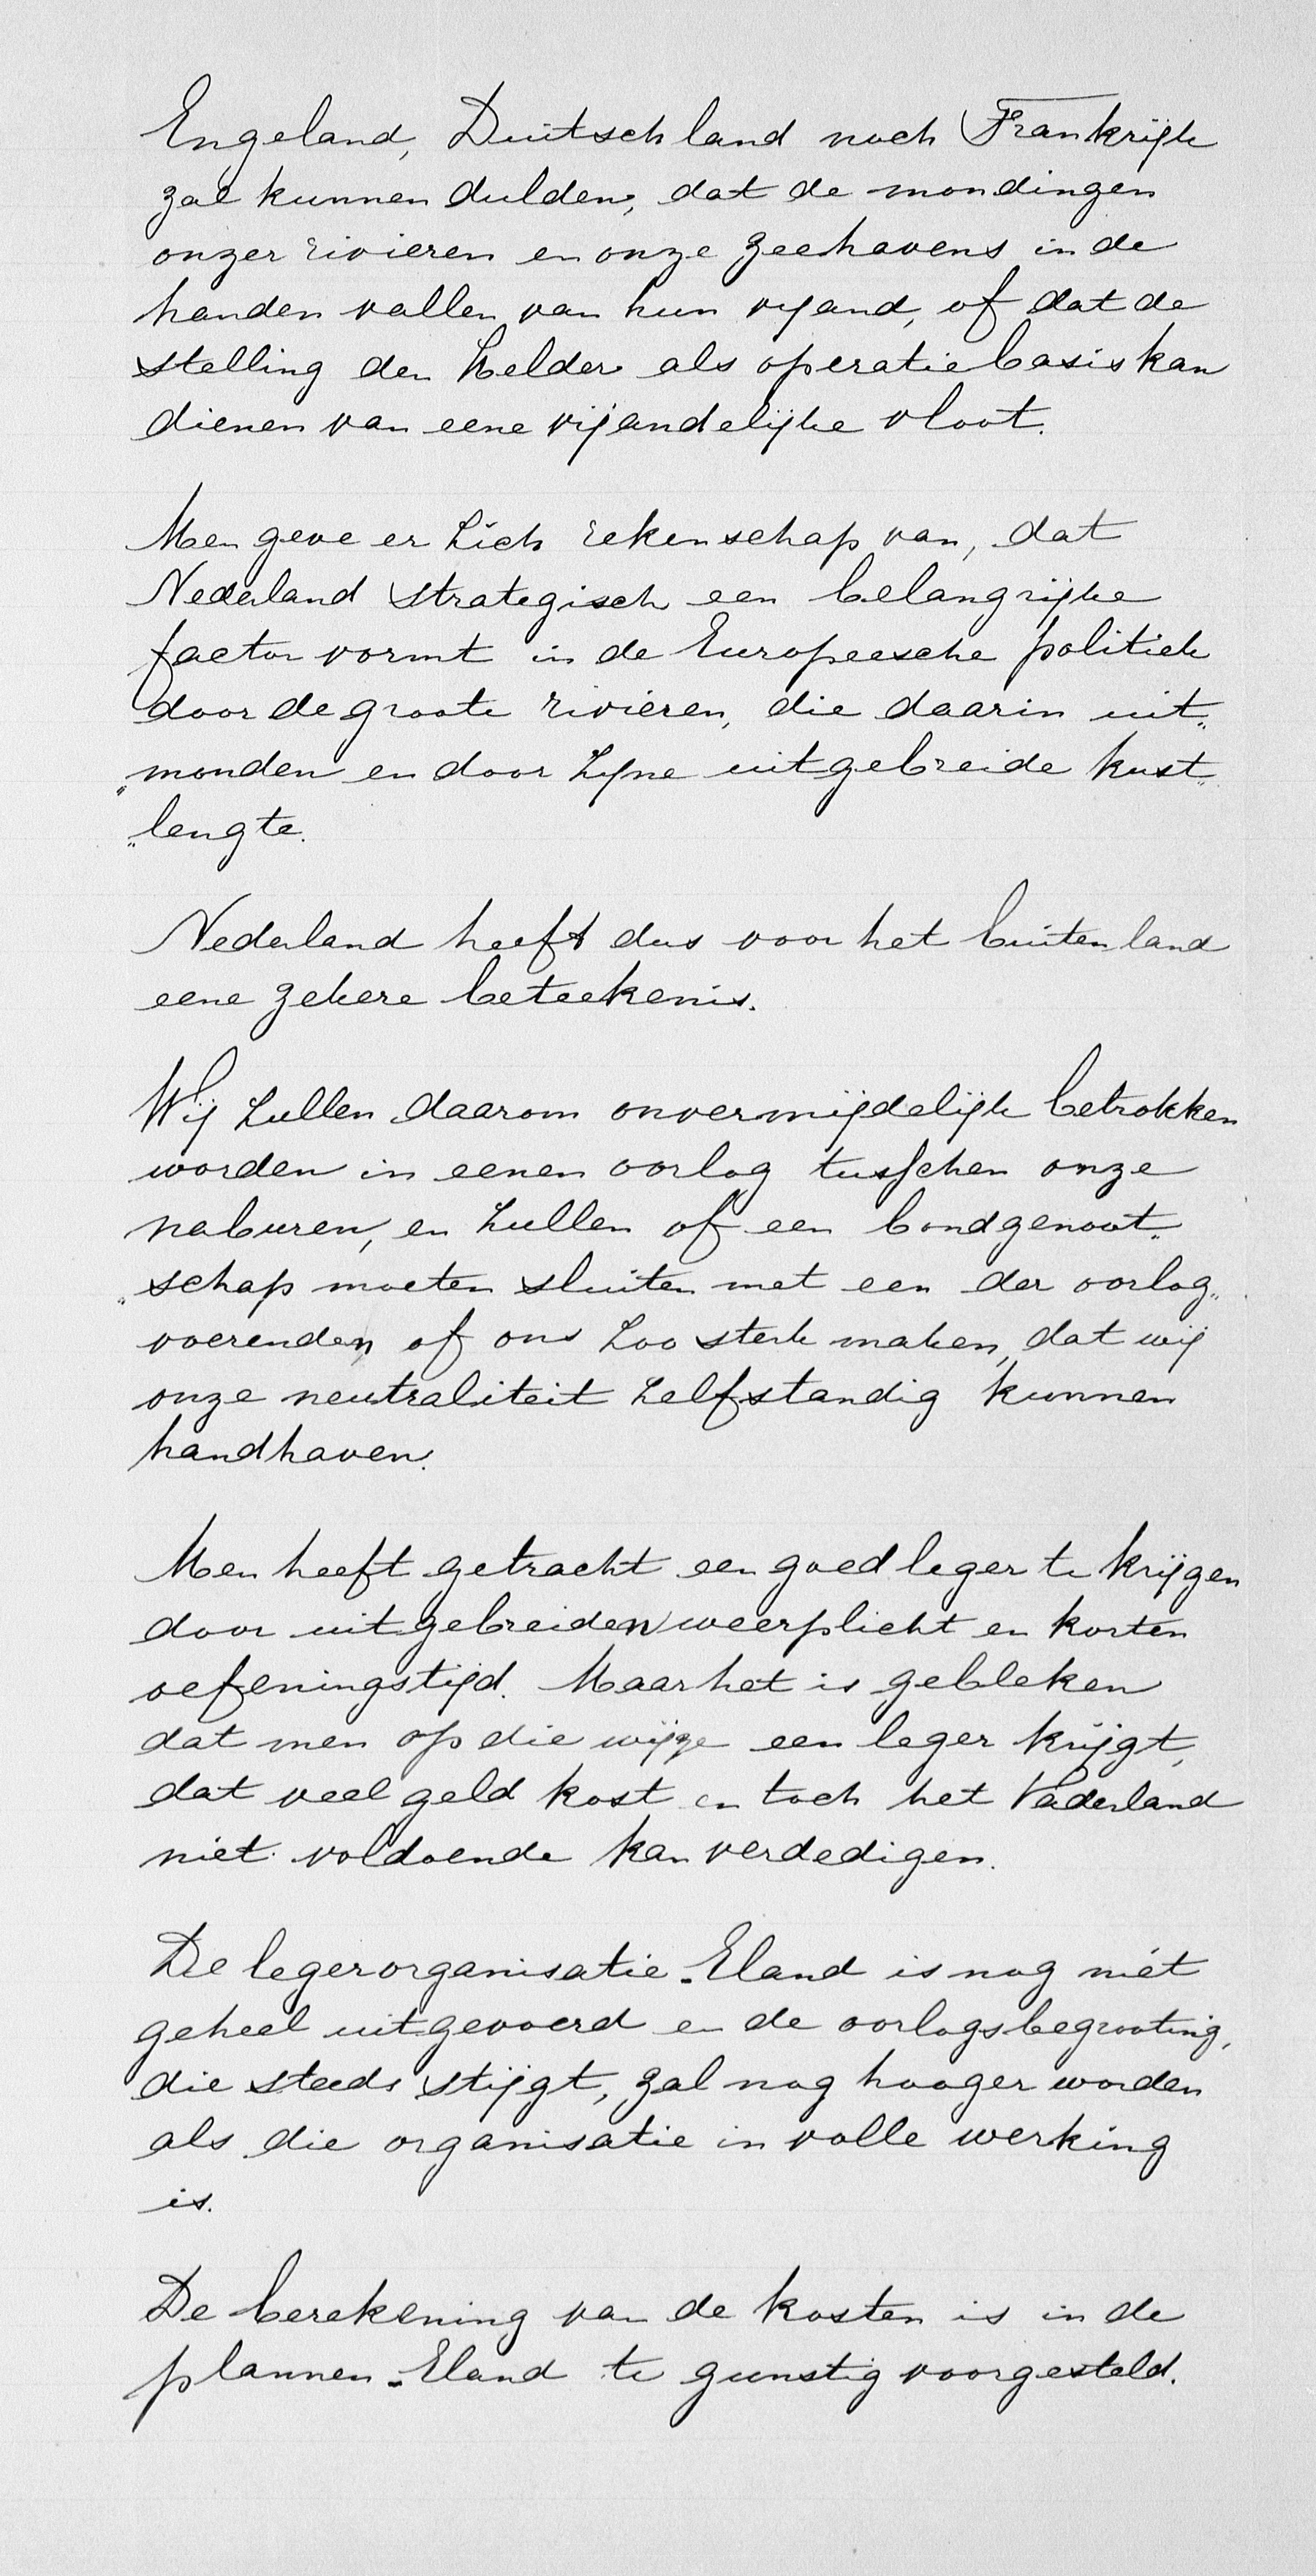 Engeland, Duitschland noch Frankrijk
zal kunnen dulden, dat de mondingen
onzer rivieren en onze zeehavens in de
handen vallen van hun vijand, of dat de
stelling den Helder als operatiebasis kan
dienen van eene vijandelijke vloot.
Men geve er zich rekenschap van, dat
Nederland strategisch een belangrijke
factor vormt in de Europeesche politiek
door de groote rivieren, die daarin uit„
„monden en door zijne uitgebreide kust„
„lengte.
Nederland heeft dus voor het buitenland
eene zekere beteekenis.
Wij zullen daarom onvermijdelijk betrokken
worden in eenen oorlog tusschen onze
naburen, en zullen of een bondgenoot„
„schap moeten sluiten met een der oorlog„
voerenden of ons zoo sterk maken, dat wij
onze neutraliteit zelfstandig kunnen
handhaven.
Men heeft getracht een goed leger te krijgen
door uitgebreiden weerplicht en korten
oefeningstijd. Maar het is gebleken
dat men op die wijze een leger krijgt,
dat veel geld kost en toch het Vaderland
niet voldoende kan verdedigen.
De legerorganisatie-Eland is nog niét
geheel uitgevoerd en de oorlogsbegrooting,
die steeds stijgt, zal nog hooger worden
als die organisatie in volle werking
is.
De berekening van de kosten is in de
plannen-Eland te gunstig voorgesteld.